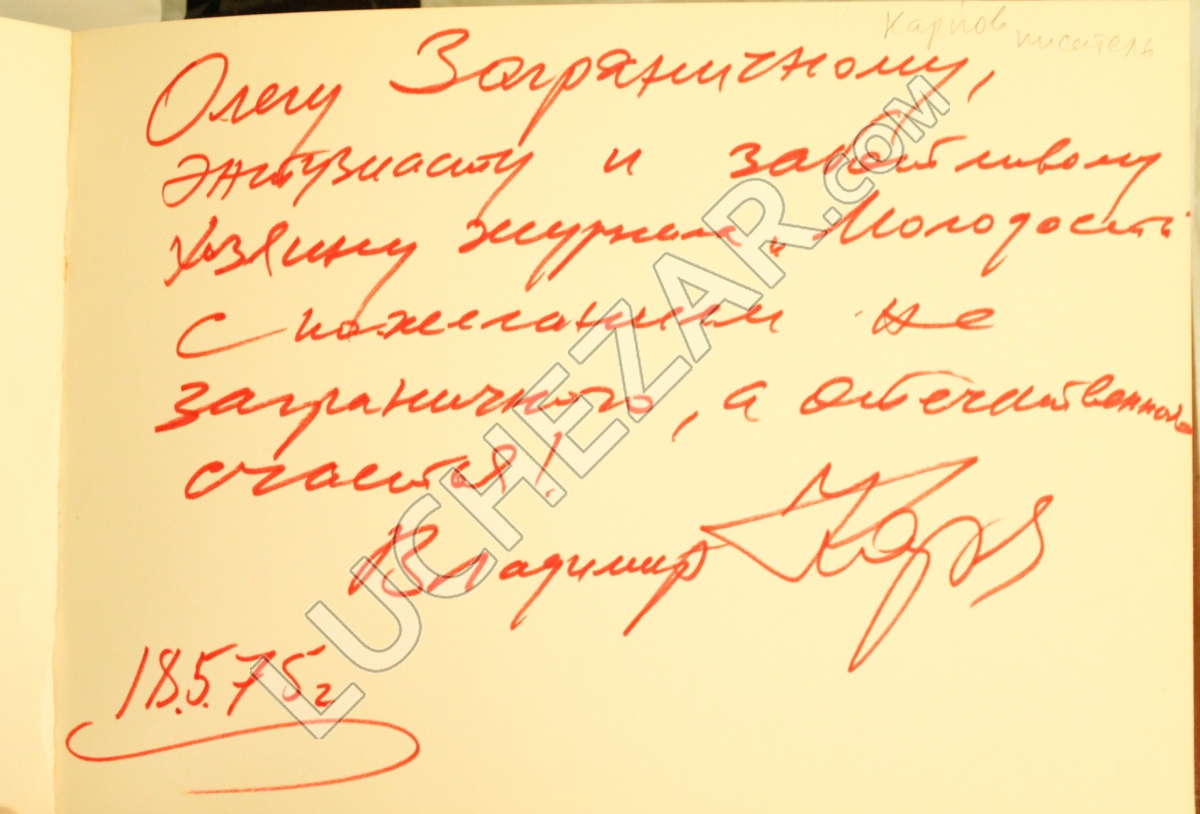 Карпов
писатель
Олегу Заграничному,
энтузиасту и заботливому
хозяину журнала „Молодость
с пожеланием не
заграничного, а отечественного
счастья!
Владимир Карпов
18.5.75г
LUCHEZAR.COM